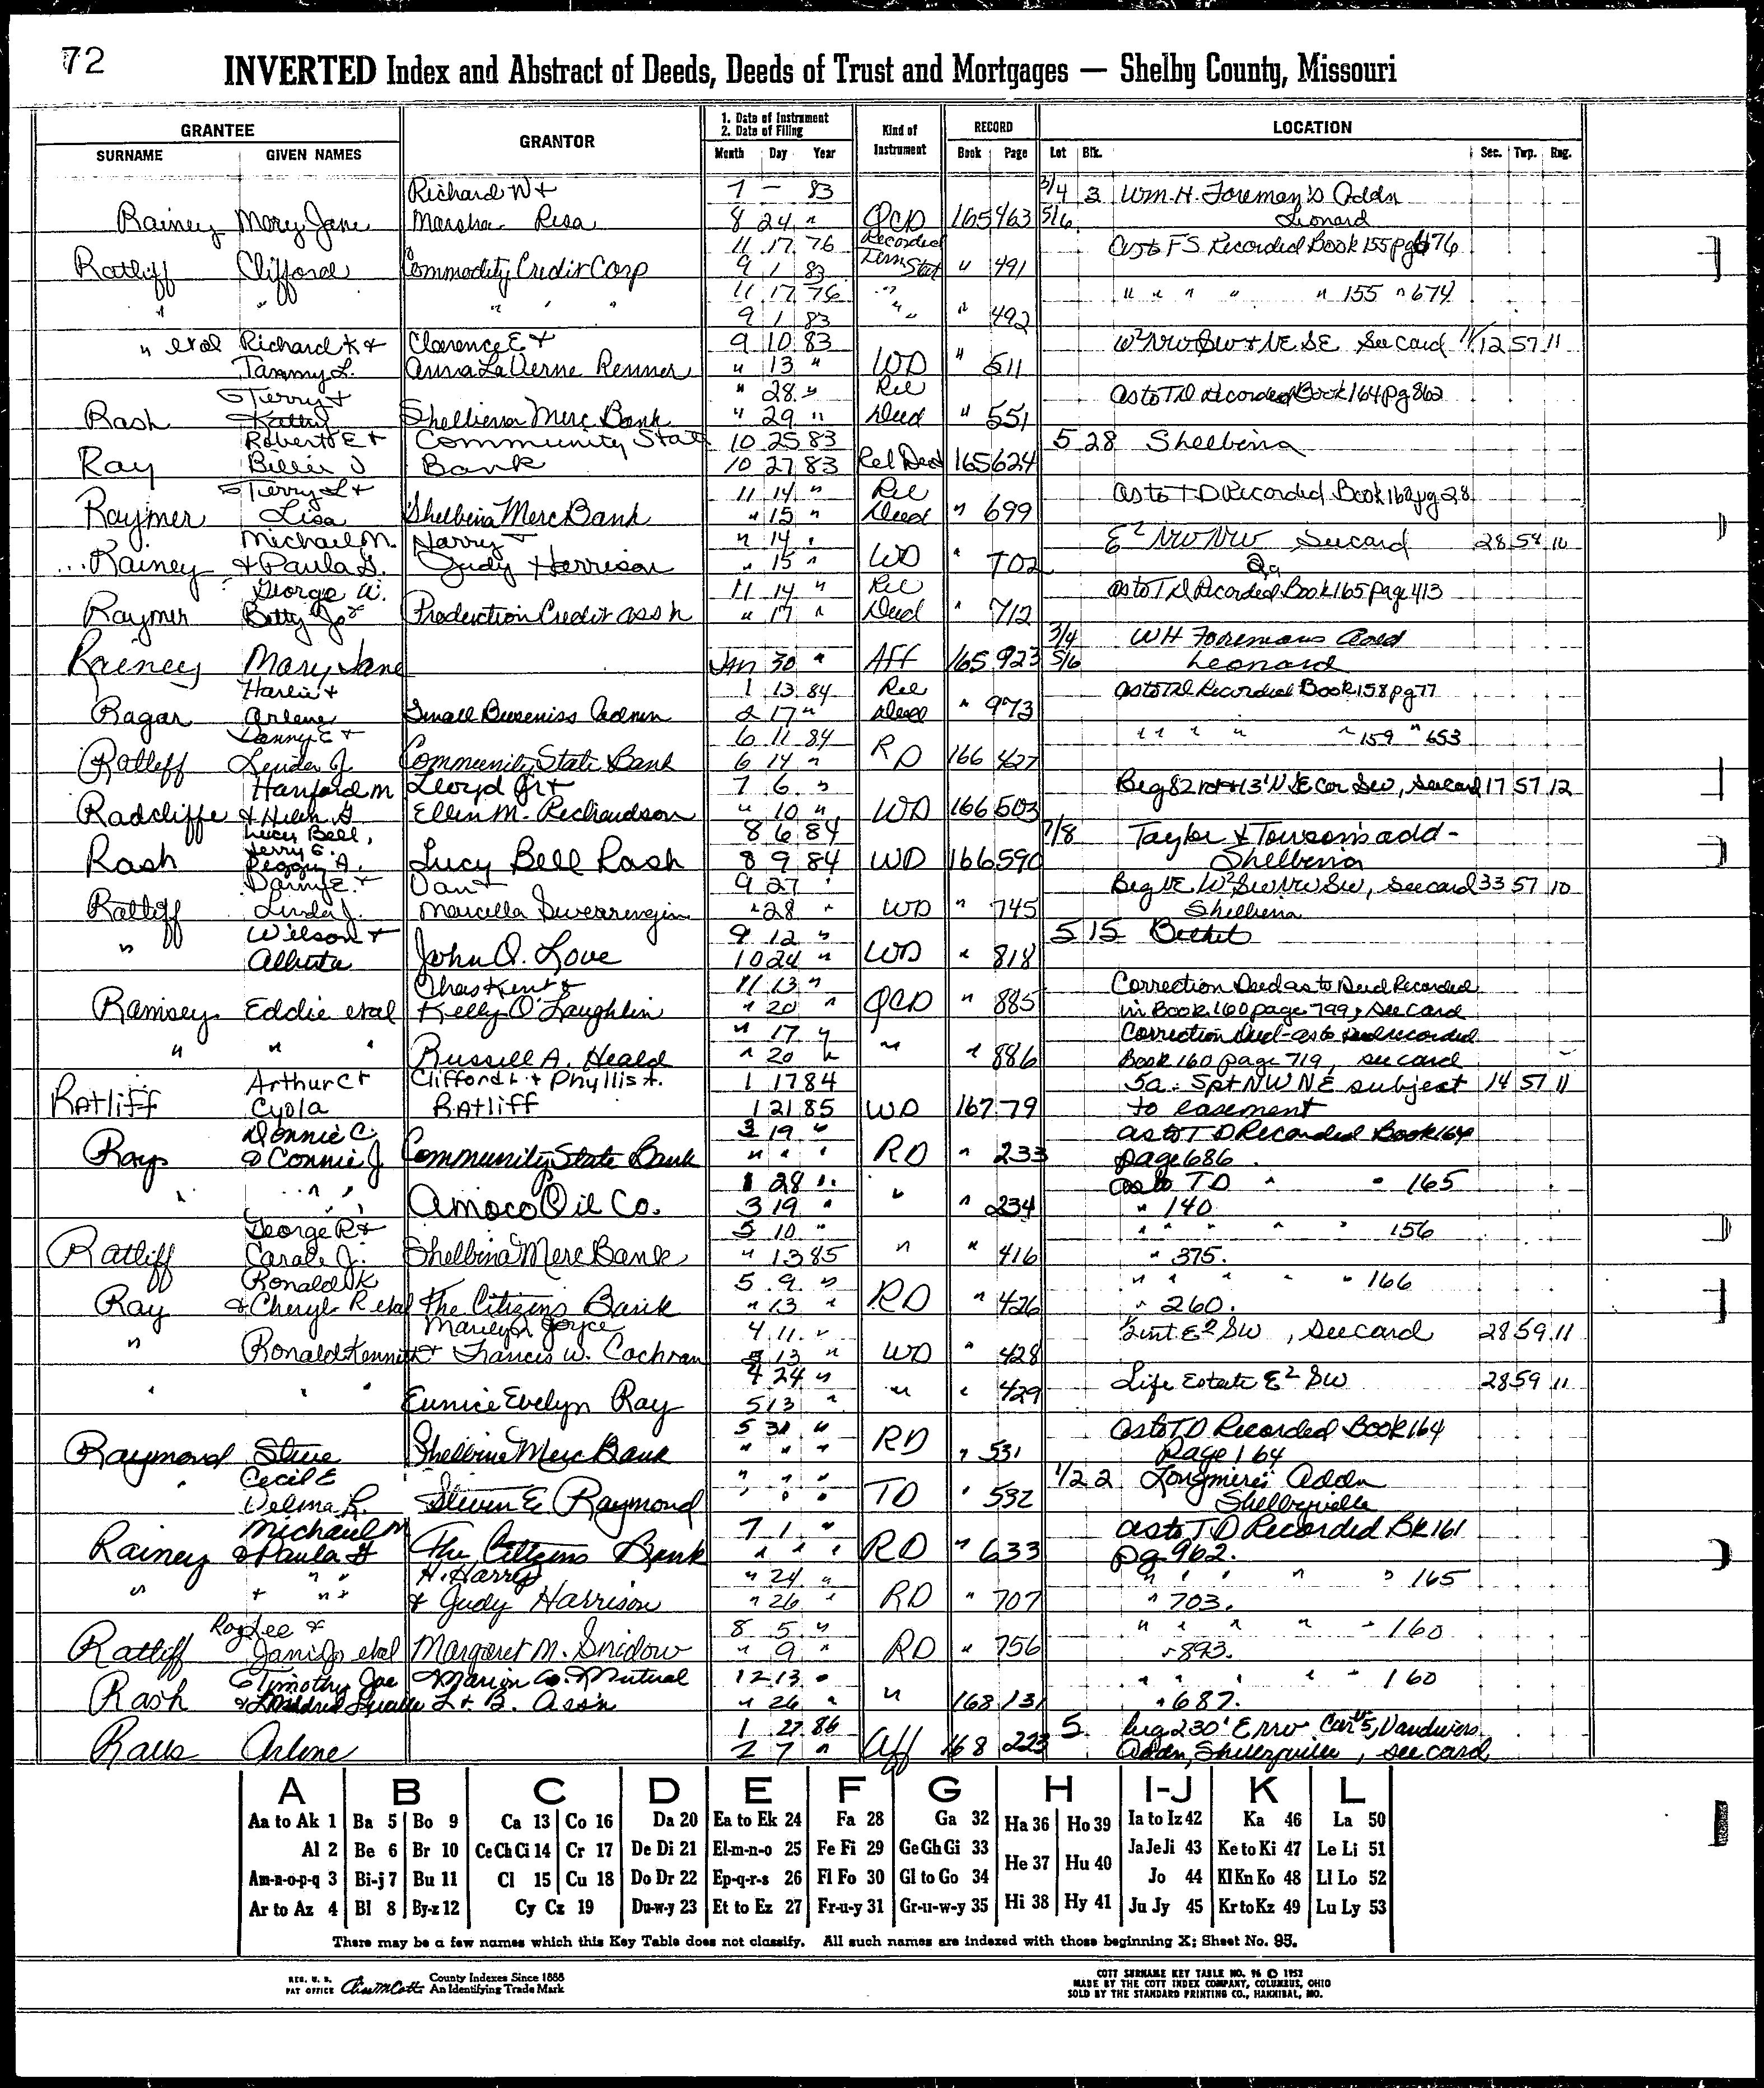 72
INVERTED Index and Abstract of Deeds, Deeds of Trust and Mortgages — Shelby County, Missouri
GRANTEE GRANTOR 1. Date of Instrument 2. Date of Filing Kind of Instrument RECORD LOCATION
SURNAME GIVEN NAMES Month Day Year Book Page Lot Blk. Sec. Twp. Rng.
Richard W + 7 — 83 3/4 3 Wm. H. Foreman's Addn
Rainey Mary Jane Marsha Risa 8 24 " QCD 165 463 5/6 Leonard
11 17 76 Recorded as to F.S. Recorded Book 155 pg 676
Ratliff Clifford Commodity Credit Corp 9 1 83 Term Stat " 491
11 17 76 " " " " " " 155 " 674
" " " " " 9 1 83 " " 492
" etal Richard K + Clarence E + 9 10 83 W² NW SW + NE SE See Card 11/12 57 11
Tammy L. Anna LaVerne Renner " 13 " WD " 511
Terry + " 28 " Rel as to TD Recorded Book 164 pg 862
Rash Kathy Shelbina Merc Bank " 29 " Deed " 551
Robert E + Community State 10 25 83 5 28 Shelbina
Ray Billie J Bank 10 27 83 Rel Deed 165 624
Terry L + 11 14 " Rel as to TD Recorded Book 162 pg 28
Raymer Lisa Shelbina Merc Bank " 15 " Deed " 699
Michael M. Harry + " 14 " E² NW NW See card 28 54 10
Rainey + Paula G. Judy Harrison " 15 " WD " 702
George W. 11 14 " Rel as to TD Recorded Book 165 page 413
Raymer Betty Jo + Production Credit assn " 17 " Deed " 712
3/4 WH Foremans Add
Rainey Mary Jane Jan 30 " Aff 165 923 5/6 Leonard
Harlie + 1 13 84 Rel as to TD Recorded Book 158 pg 77
Ragar Arlene Small Buseniss Admin 2 17 " Deed " 973
Danny E + 6 11 84 " " " " " 159 " 653
Ratliff Linda J. Community State Bank 6 14 " RD 166 427
Hanford M Lloyd Jr + 7 6 " Beg 82 rd + 13' N SE Cor SW, See card 17 57 12
Radcliffe + Helen G Ellen M. Richardson " 10 " WD 166 503
Lucy Bell, 8 6 84 7/8 Taylor & Towson's add-
Jerry E.
Rash Peggy A. Lucy Bell Rash 8 9 84 WD 166 590 Shelbina
Danny E. + Dan + 9 27 " Beg NE W² SW NW SW, See card 33 57 10
Ratliff Linda J. Marcella Swearengin " 28 " WD " 745 Shelbina
Wilson + 9 12 " 5 15 Bethel
" Alberta John Q. Love 10 24 " WD " 818
Chas Kent & 11 13 " Correction Deed as to Deed Recorded
Ramsey Eddie etal Kelly O'Laughlin " 20 " QCD " 885 in Book 160 page 799, See card
" 17 " Correction Deed - as to deed recorded
" " " Russell A. Heald " 20 " " " 886 Book 160 page 719, see card
Arthur C + Clifford L. + Phyllis A. 1 17 84 5a. Spt NW NE subject 14 57 11
Ratliff Cyola Ratliff 1 21 85 WD 167 79 to easement
Donnie C. 3 19 " as to TD Recorded Book 164
Ray & Connie J Community State Bank " " " RD " 233 page 686
" " " 1 28 " as to TD " " 165
Amoco Oil Co. 3 19 " " " 234 " 140
George R + 5 10 " " " " " " 156
Ratliff Carole J. Shelbina Merc Bank " 13 85 " " 416 " 375.
Ronald K 5 9 " " " " " " 166
Ray & Cheryl R etal The Citizens Bank " 13 " RD " 426 " 260.
Marilyn Joyce 4 11 " ½ int E² SW, See card 28 59 11
" Ronald Kenneth + Francis W. Cochran 5 13 " WD " 428
" " " 4 24 " Life Estate E² SW 28 59 11
Eunice Evelyn Ray 5 13 " " " 429
5 31 " as to TD Recorded Book 164
Raymond Steve Shelbina Merc Bank " " " RD " 531 Page 164
" Cecil E " " " 1/2 2 Longmires Addn
Velma R. Steven E Raymond " " " TD " 532 Shelbyville
Michael M 7 1 " as to TD Recorded Bk 161
Rainey & Paula G The Citizens Bank " " " RD " 633 pg 962.
" " H. Harry " 24 " " " " " " 165
" + " " & Judy Harrison " 26 " RD " 707 " 703.
Roy Lee & 8 5 " " " " " " 160
Ratliff Jani Jo etal Margaret M. Snidow " 9 " RD " 756 " 893.
Timothy Joe Marion Co. Mutual 12 13 " " " " " " 160
Rash & Mildred L. + B. Ass'n " 26 " " 168 131 " 687.
1 27 86 5 beg 230' E nw Cor 5, Vandivers
Ralls Arlene 2 7 " Aff 168 223 Addn, Shelbyville, see card
A B C D E F G H I-J K L
Aa to Ak 1 Ba 5 Bo 9 Ca 13 Co 16 Da 20 Ea to Ek 24 Fa 28 Ga 32 Ha 36 Ho 39 Ia to Iz 42 Ka 46 La 50
Al 2 Be 6 Br 10 Ce Ch Ci 14 Cr 17 De Di 21 El-m-n-o 25 Fe Fi 29 Ge Gh Gi 33 He 37 Hu 40 Ja Je Ji 43 Ke to Ki 47 Le Li 51
Am-n-o-p-q 3 Bi-j 7 Bu 11 Cl 15 Cu 18 Do Dr 22 Ep-q-r-s 26 Fl Fo 30 Gl to Go 34 Jo 44 Kl Kn Ko 48 Ll Lo 52
Ar to Az 4 Bl 8 By-z 12 Cy Cz 19 Du-w-y 23 Et to Ez 27 Fr-u-y 31 Gr-u-w-y 35 Hi 38 Hy 41 Ju Jy 45 Kr to Kz 49 Lu Ly 53
There may be a few names which this Key Table does not classify. All such names are indexed with those beginning X; Sheet No. 95.
REG. U. S. PAT OFFICE County Indexes Since 1888 An Identifying Trade Mark
COTT SURNAME KEY TABLE NO. 96 © 1952
MADE BY THE COTT INDEX COMPANY, COLUMBUS, OHIO
SOLD BY THE STANDARD PRINTING CO., HANNIBAL, MO.